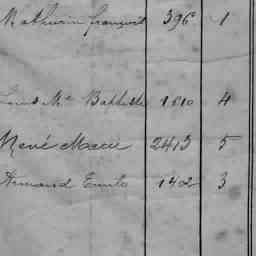 Mathurin François 396 1
Louis Me Baptiste 1810 4
René Marie 2413 5
Armand Emile 1402 3